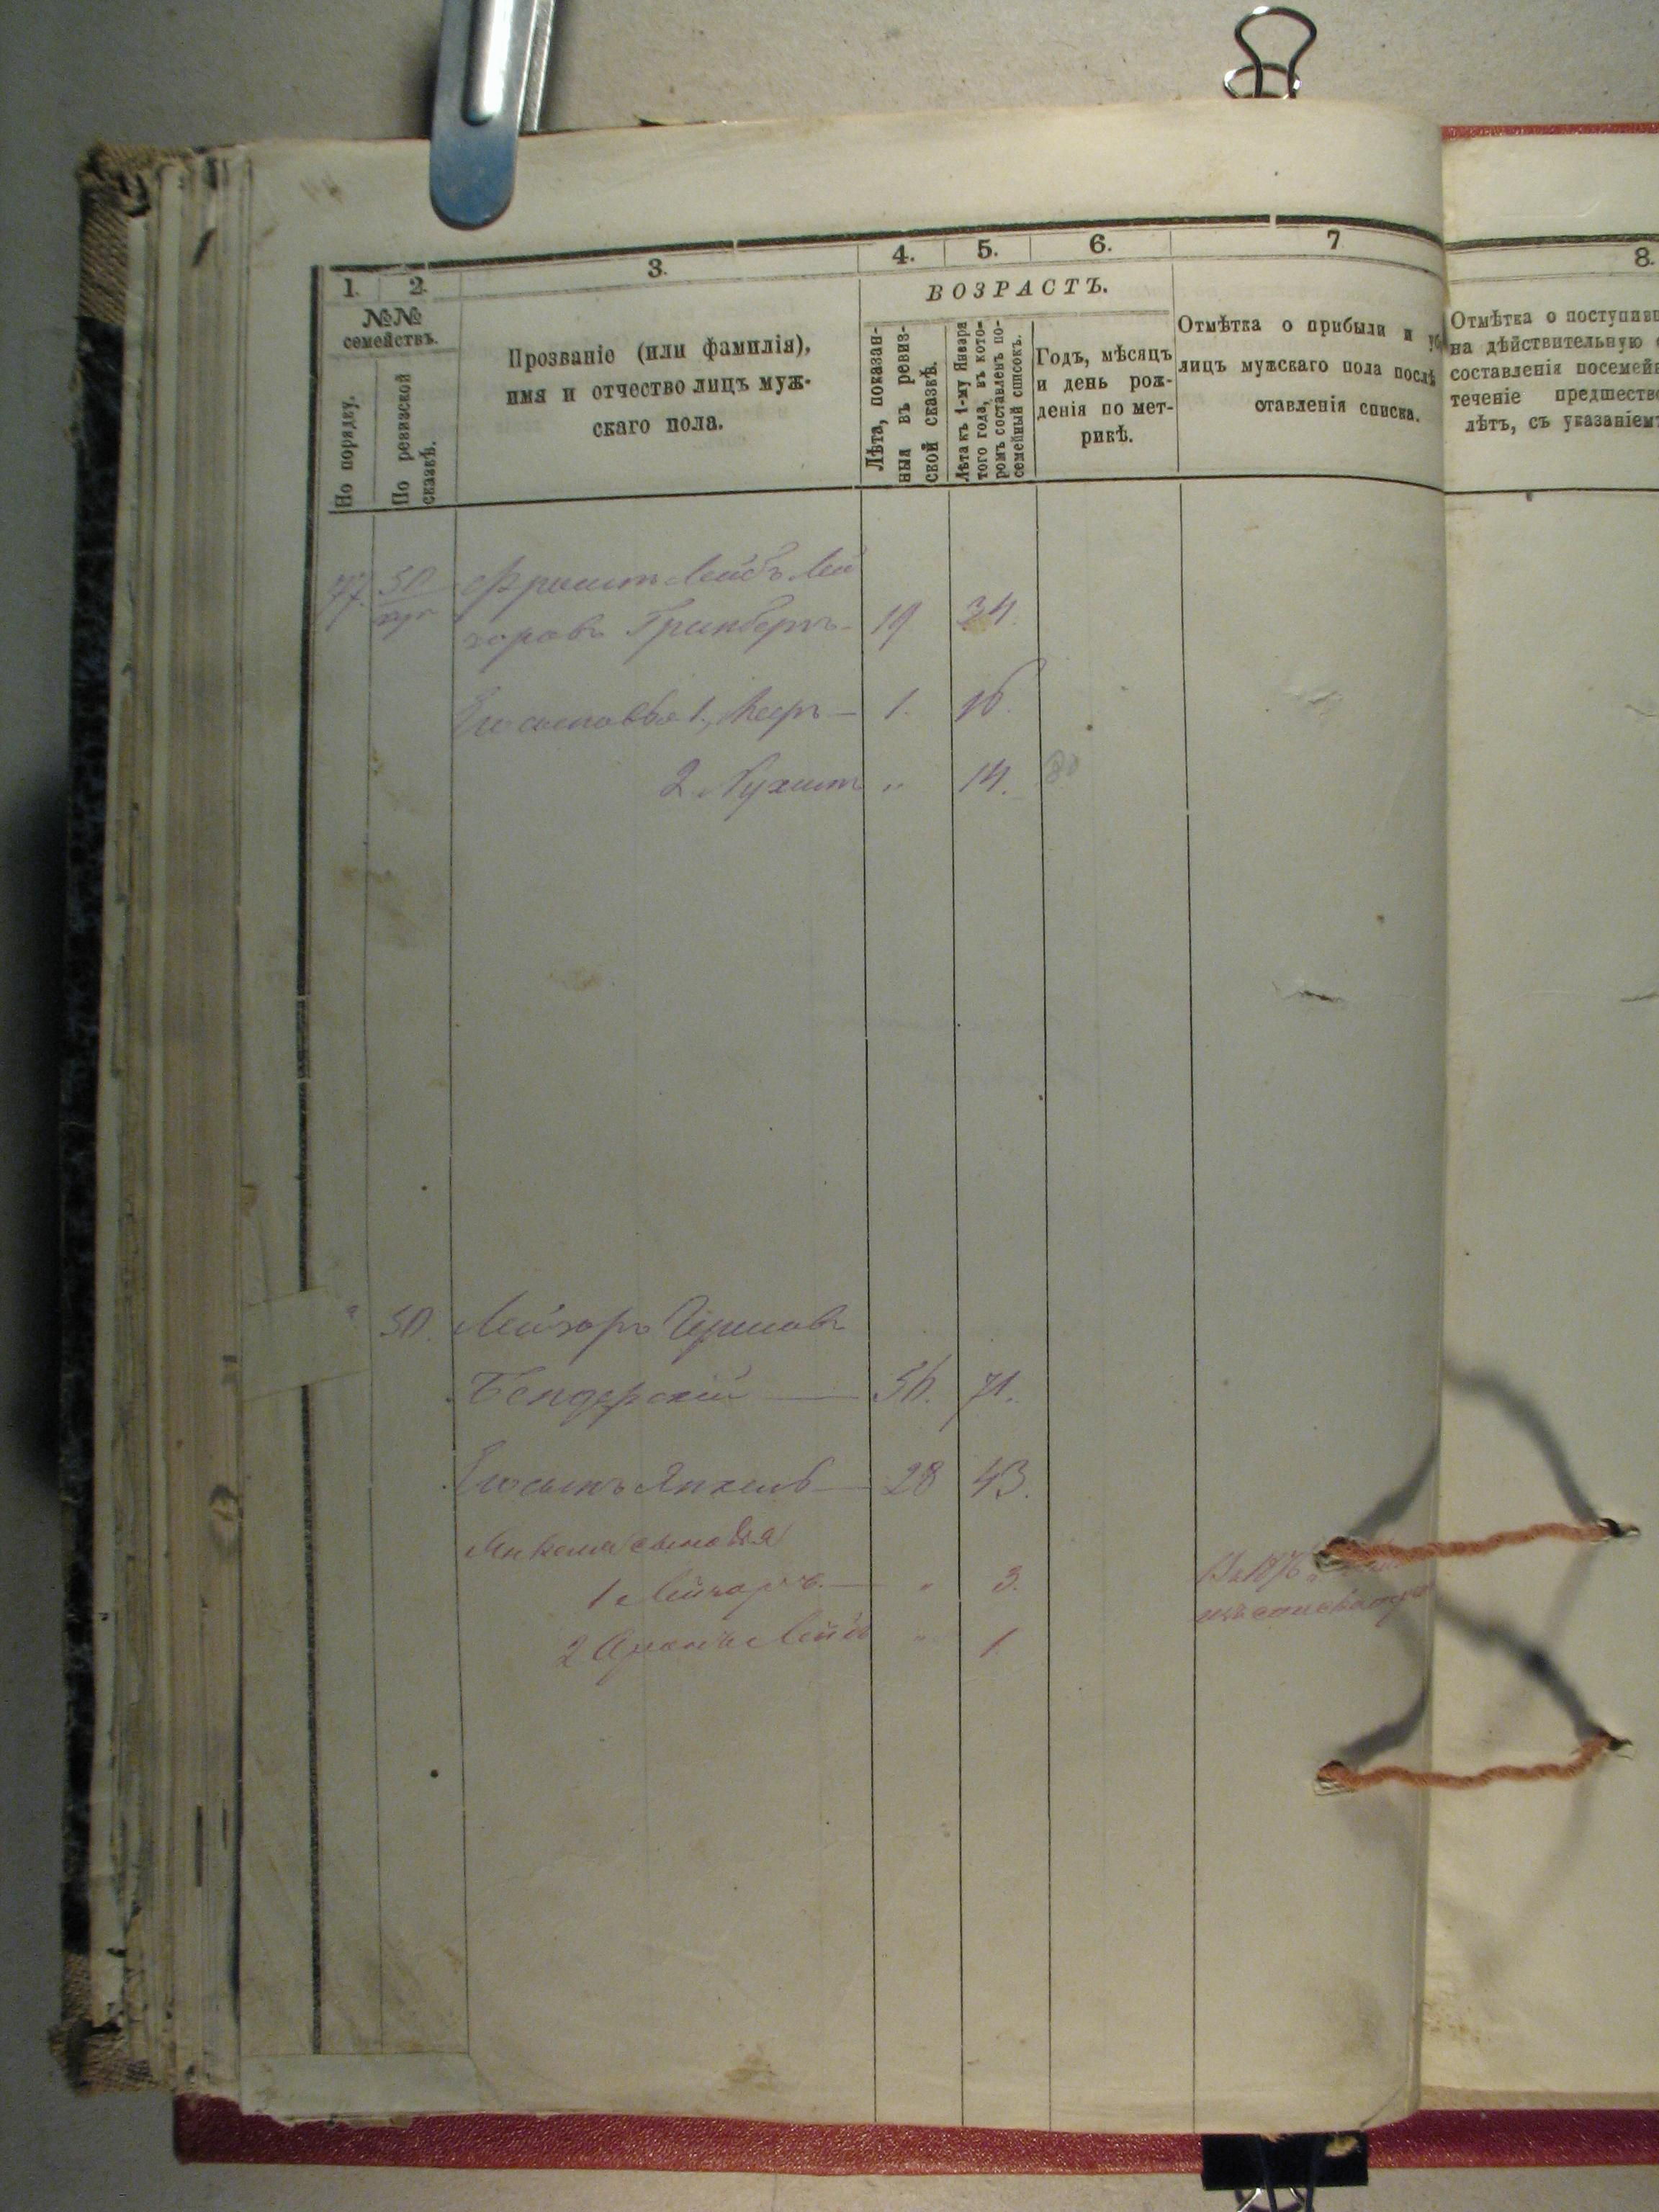 1. 2. 3. 4. 5. 6. 7 8.
№№ семействъ.
По порядку.
По ревизской сказкѣ.
Прозваніе (или фамилія),
имя и отчество лицъ муж-
скаго пола.
ВОЗРАСТЪ.
Лѣта, показан-
ныя въ ревиз-
ской сказкѣ.
Лѣта къ 1-му Января
того года, въ кото-
ромъ составленъ по-
семейный списокъ.
Годъ, мѣсяцъ
и день рож-
денія по мет-
рикѣ.
Отмѣтка о прибыли и
лицъ мужскаго пола послѣ
ставленія списка.
Отмѣтка о поступивш
на дѣйствительную
составленія посемей
теченіе предшеств
лѣтъ, съ указаніем
77. 50 Фроимъ Лейбъ Лей
зоровъ Гринбергъ 19 34.
Его сыновья 1, Мееръ 1. 16.
2 Нухимъ " 14.
" 50. Лейзоръ Гершковъ
Бендерскій 56. 71.
Его сынъ Янкель 28 43.
Янкеля сыновья
1 Лейзоръ " 3.
2 Аронъ Лейбъ " 1.